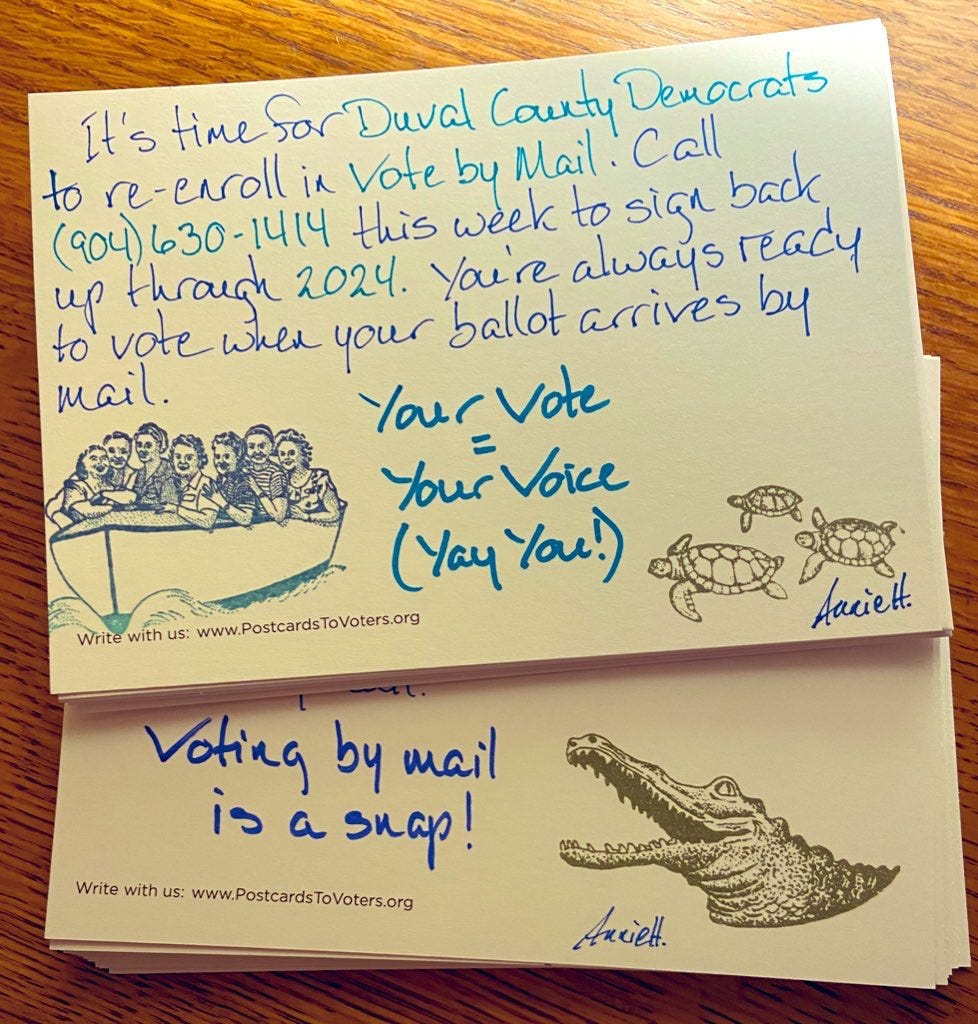 It's time for Duval County Democrats
to re-enroll in Vote by Mail. Call
(904)630-1414 this week to sign back
up through 2024. You're always ready
to vote when your ballot arrives by
mail.
Your Vote
=
Your Voice
(Yay You!)
AnnieH.
Write with us: www.PostcardsToVoters.org
Voting by mail
is a snap!
Write with us: www.PostcardsToVoters.org
AnnieH.